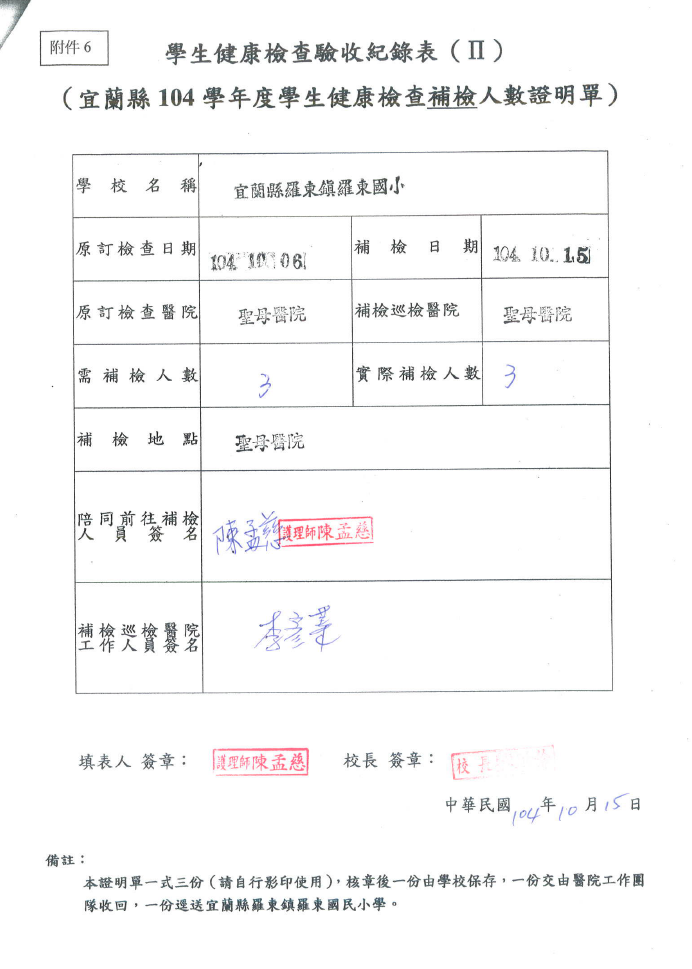 附件 6
學生健康檢查驗收紀錄表（Ⅱ）
（宜蘭縣 104 學年度學生健康檢查補檢人數證明單）
學校名稱 宜蘭縣羅東鎮羅東國小
原訂檢查日期 104. 10. 06 補檢日期 104. 10. 15
原訂檢查醫院 聖母醫院 補檢巡檢醫院 聖母醫院
需補檢人數 3 實際補檢人數 3
補檢地點 聖母醫院
陪同前往補檢
人員簽名
陳孟慈 護理師陳孟慈
補檢巡檢醫院
工作人員簽名
李彥
填表人 簽章： 護理師陳孟慈 校長 簽章： 校長
中華民國 104 年 10 月 15 日
備註：
本證明單一式三份（請自行影印使用），核章後一份由學校保存，一份交由醫院工作團
隊收回，一份逕送宜蘭縣羅東鎮羅東國民小學。